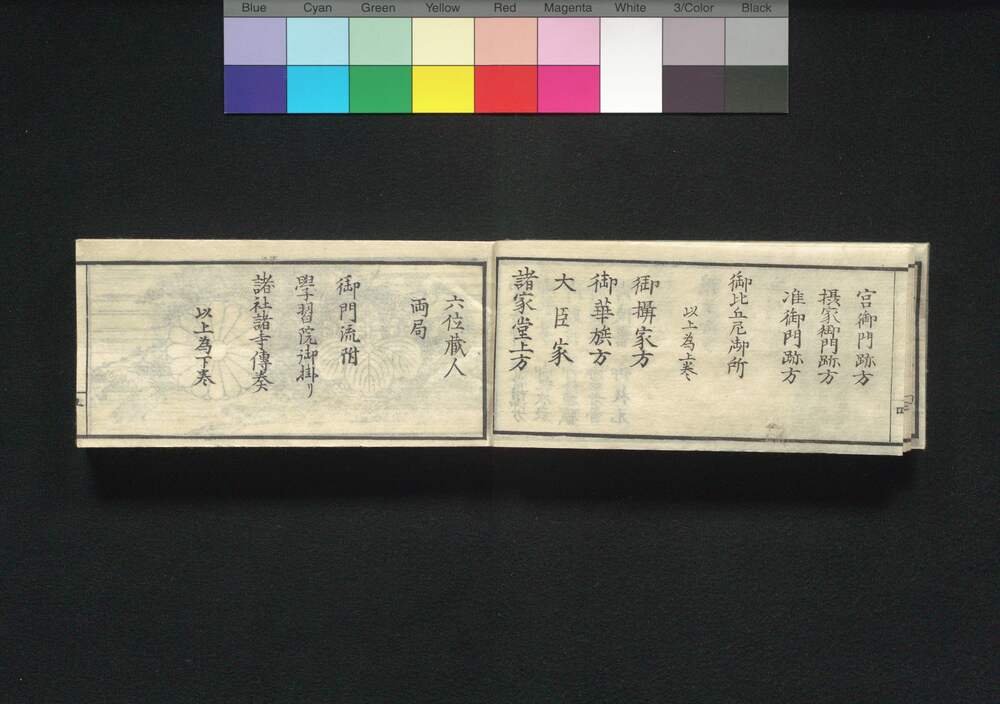 Blue Cyan Green Yellow Red Magenta White 3/Color Black
宮御門跡方
摂家御門跡方
准御門跡方
御比丘尼御所
以上為上巻
御攝家方
御華族方
大臣家
諸家堂上方
六位蔵人
両局
御門流附
學習院御掛リ
諸社諸寺傳奏
以上為下巻